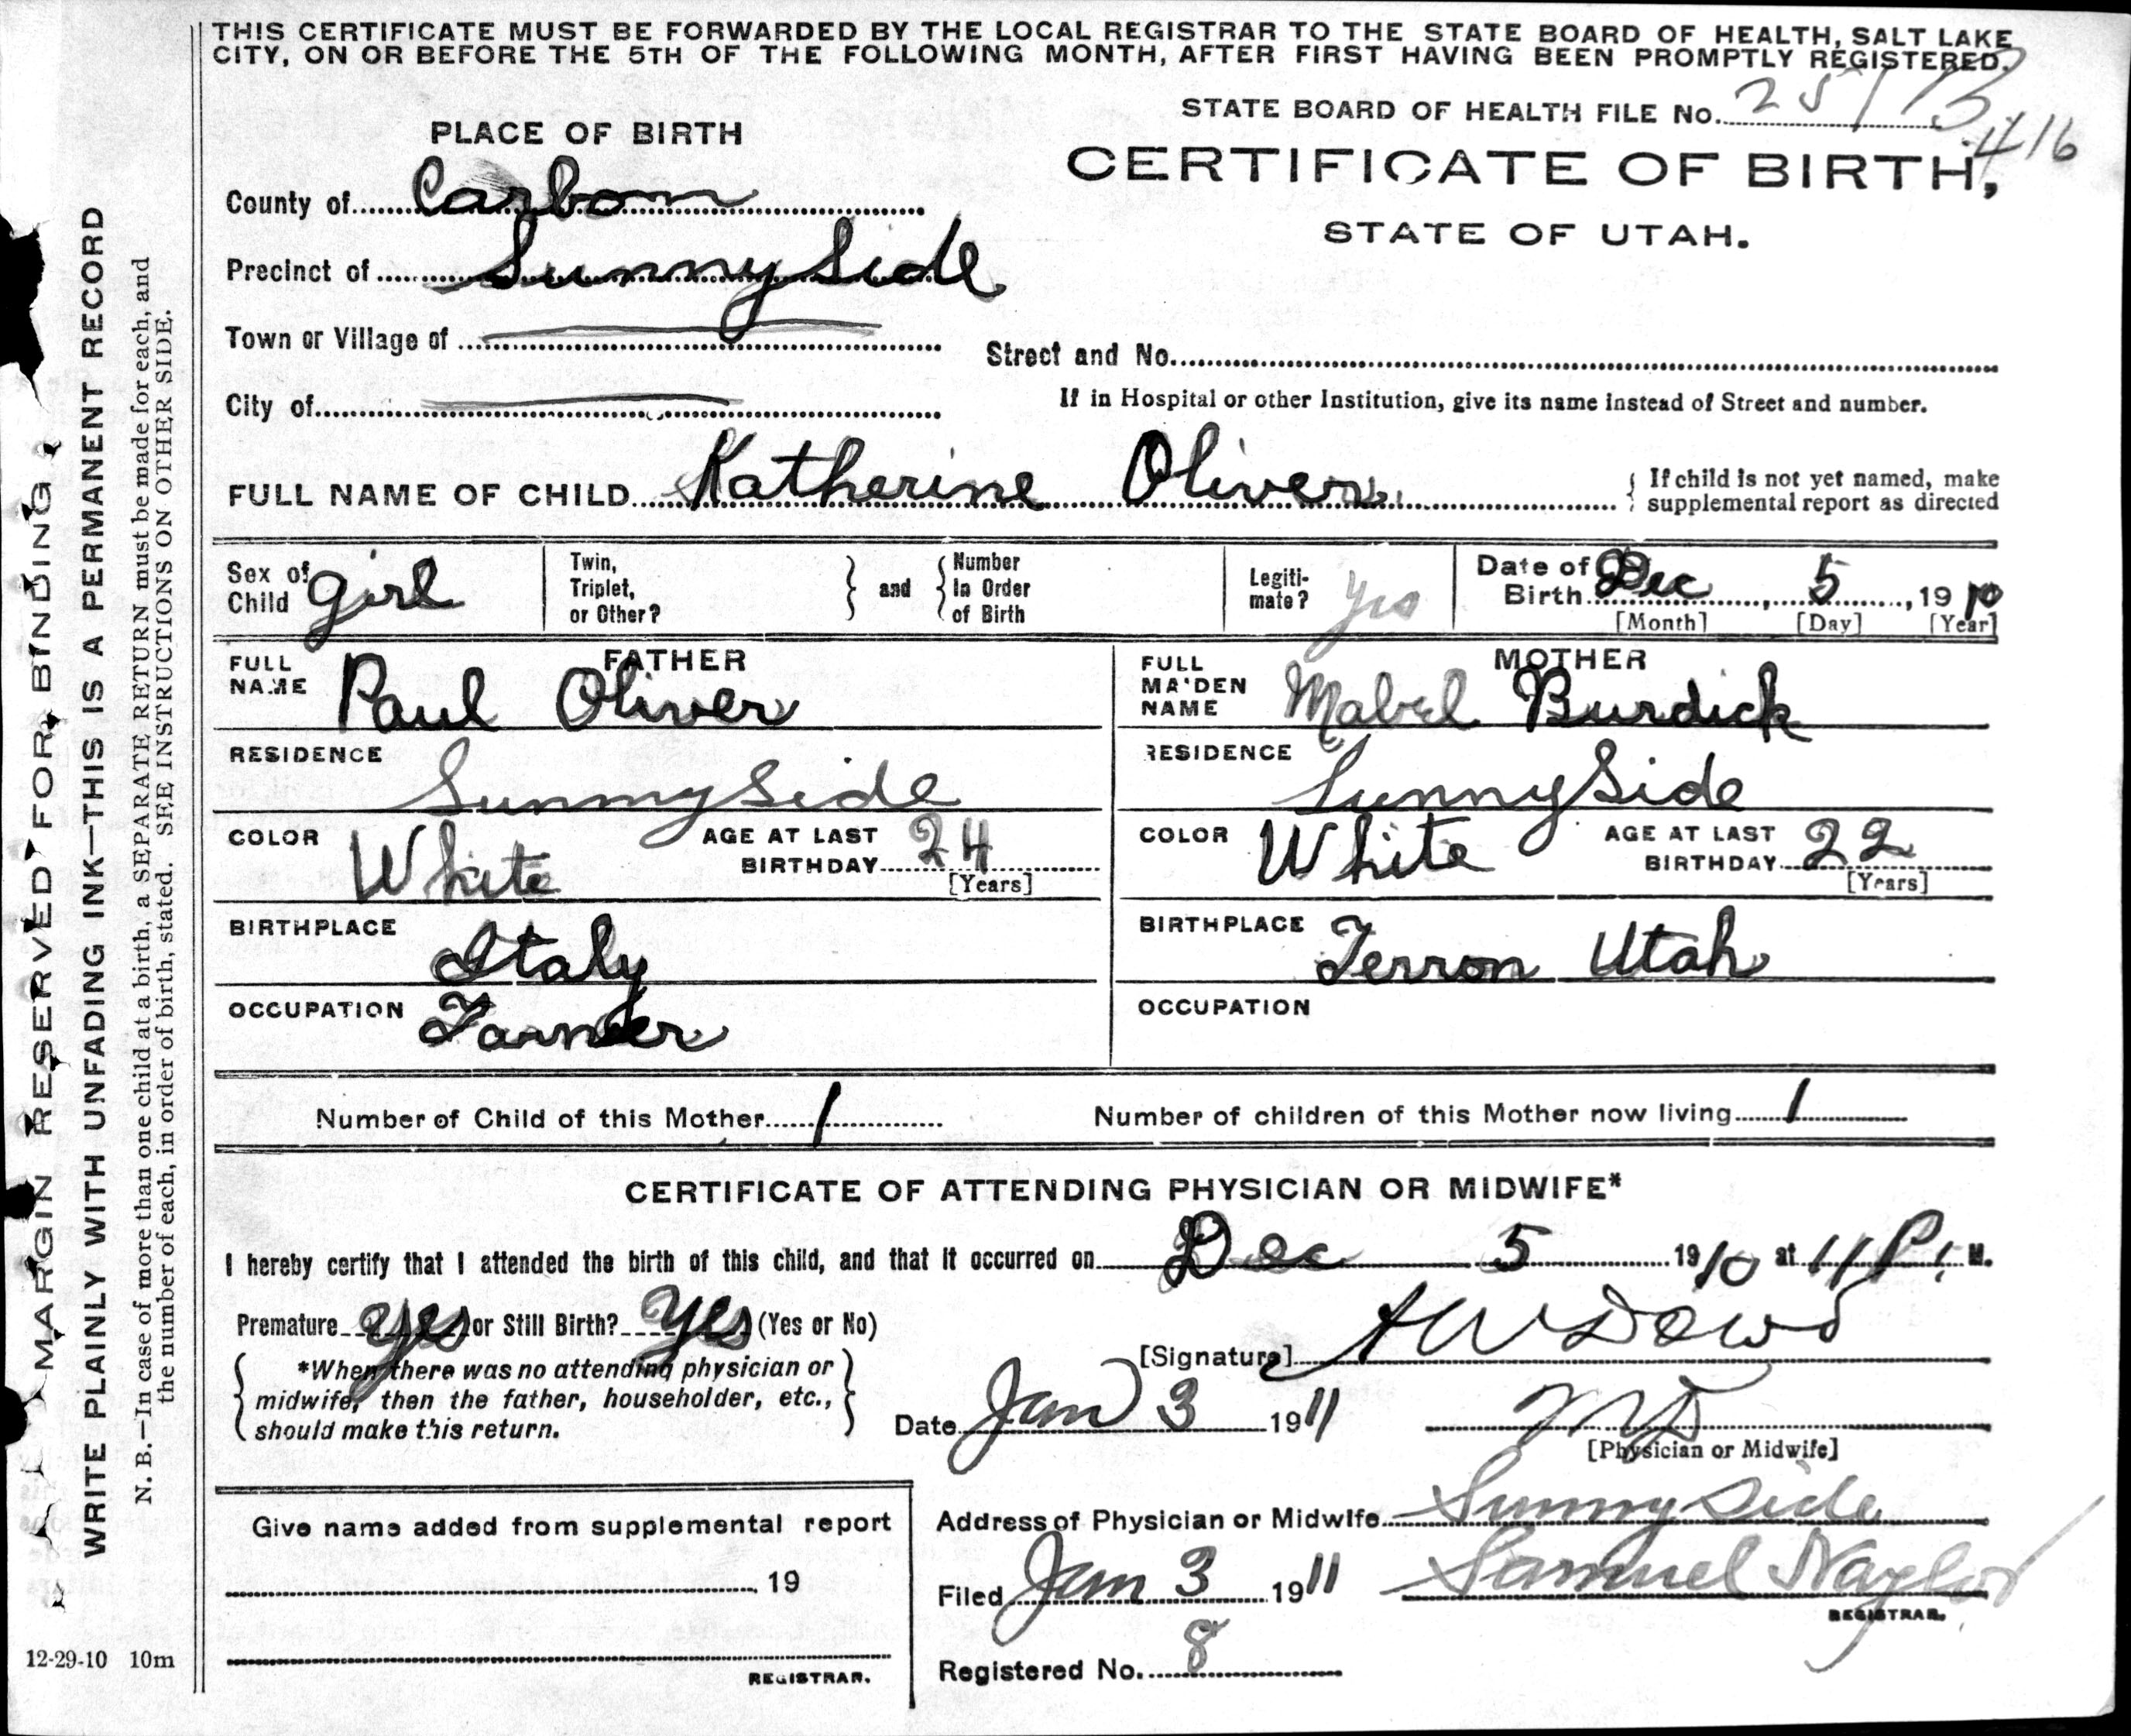 THIS CERTIFICATE MUST BE FORWARDED BY THE LOCAL REGISTRAR TO THE STATE BOARD OF HEALTH, SALT LAKE
CITY, ON OR BEFORE THE 5TH OF THE FOLLOWING MONTH, AFTER FIRST HAVING BEEN PROMPTLY REGISTERED.
STATE BOARD OF HEALTH FILE No.
416
PLACE OF BIRTH
CERTIFICATE OF BIRTH,
STATE OF UTAH.
County of Carbon
Precinct of Sunny Side
Town or Village of
Street and No.
City of
If in Hospital or other Institution, give its name instead of Street and number.
FULL NAME OF CHILD Katherine Oliver
If child is not yet named, make
supplemental report as directed
Sex of Child girl
Twin, Triplet, or Other?
and
Number In Order of Birth
Legiti-mate? Yes
Date of Birth Dec 5, 1910
[Month] [Day] [Year]
FATHER
FULL NAME Paul Oliver
RESIDENCE Sunnyside
COLOR White AGE AT LAST BIRTHDAY 24
[Years]
BIRTHPLACE Italy
OCCUPATION Farmer
MOTHER
FULL MAIDEN NAME Mabel Burdick
RESIDENCE Sunny Side
COLOR White AGE AT LAST BIRTHDAY 22
[Years]
BIRTHPLACE Ferron Utah
OCCUPATION
Number of Child of this Mother 1
Number of children of this Mother now living 1
CERTIFICATE OF ATTENDING PHYSICIAN OR MIDWIFE*
I hereby certify that I attended the birth of this child, and that it occurred on Dec 5 1910 at 11 P. M.
Premature yes or Still Birth? yes (Yes or No)
*When there was no attending physician or
midwife, then the father, householder, etc.,
should make this return.
[Signature] A W Dowd
Date Jan 3 1911
MD
[Physician or Midwife]
Address of Physician or Midwife Sunny Side
Filed Jan 3 1911 Samuel Naylor
REGISTRAR.
Registered No. 8
Give name added from supplemental report
19
REGISTRAR.
MARGIN RESERVED FOR BINDING
WRITE PLAINLY WITH UNFADING INK—THIS IS A PERMANENT RECORD
N. B.—In case of more than one child at a birth, a SEPARATE RETURN must be made for each, and
the number of each, in order of birth, stated. SEE INSTRUCTIONS ON OTHER SIDE.
12-29-10 10m